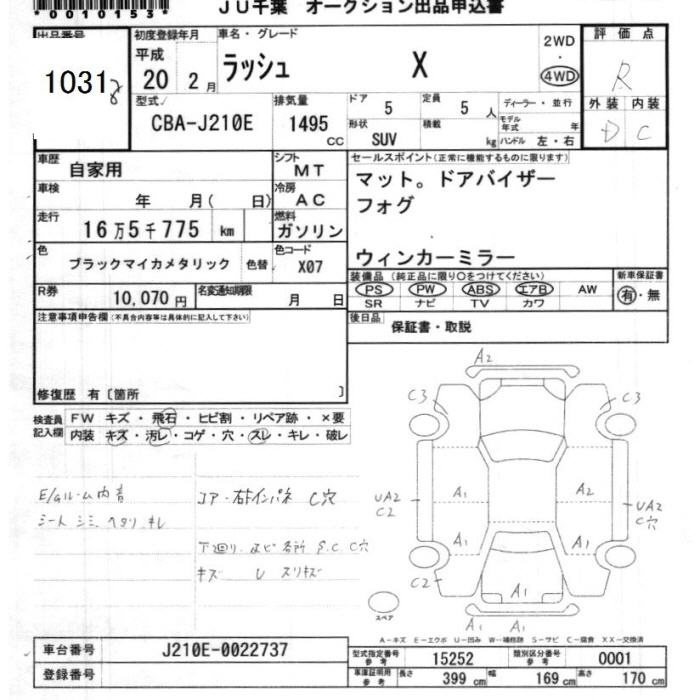 *0010153*
JU千葉 オークション出品申込書
出品番号 初度登録年月 車名・グレード 評価点
1031 平成 20 2月 ラッシュ X 2WD ・ 4WD R
型式 排気量 ドア 定員 ディーラー・並行 外装 内装
CBA-J210E 1495 CC 5 5人 モデル年式 年 D C
形状 積載 ハンドル 左・右
SUV kg
車歴 シフト セールスポイント(正常に機能するものに限ります)
自家用 MT マット。ドアバイザー
車検 冷房 フォグ
年 月( 日) AC
走行 燃料
16万5千775 km ガソリン ウィンカーミラー
色 色コード 装備品 (純正品に限り○をつけてください) 新車保証書
ブラックマイカメタリック 色替 X07 PS PW ABS エアB AW 有・無
SR ナビ TV カワ
R券 名変通知期限 後日品
10,070円 月 日 保証書・取説
注意事項申告欄(不具合内容等は具体的に記入して下さい)
修復歴 有〔箇所 〕
検査員記入欄 FW キズ・飛石・ヒビ割・リペア跡・×要
内装 キズ・汚レ・コゲ・穴・スレ・キレ・破レ
E/Gルーム内音
シート シミ ヘタリ キレ
コア・右インパネ C穴
下廻り サビ 各所 S.C. C穴
キズ U スリキズ
A2
C3 C3
UA2 C2 A1 A2 UA2 C穴
A1 A1
C2 A1
A1 A1
スペア
A-キズ E-エクボ U-凹み W-補修跡 S-サビ C-腐食 XX-交換済
車台番号 J210E-0022737 型式指定番号 参考 15252 類別区分番号 参考 0001
登録番号 車庫証明用 参考 長さ 399 cm 幅 169 cm 高さ 170 cm